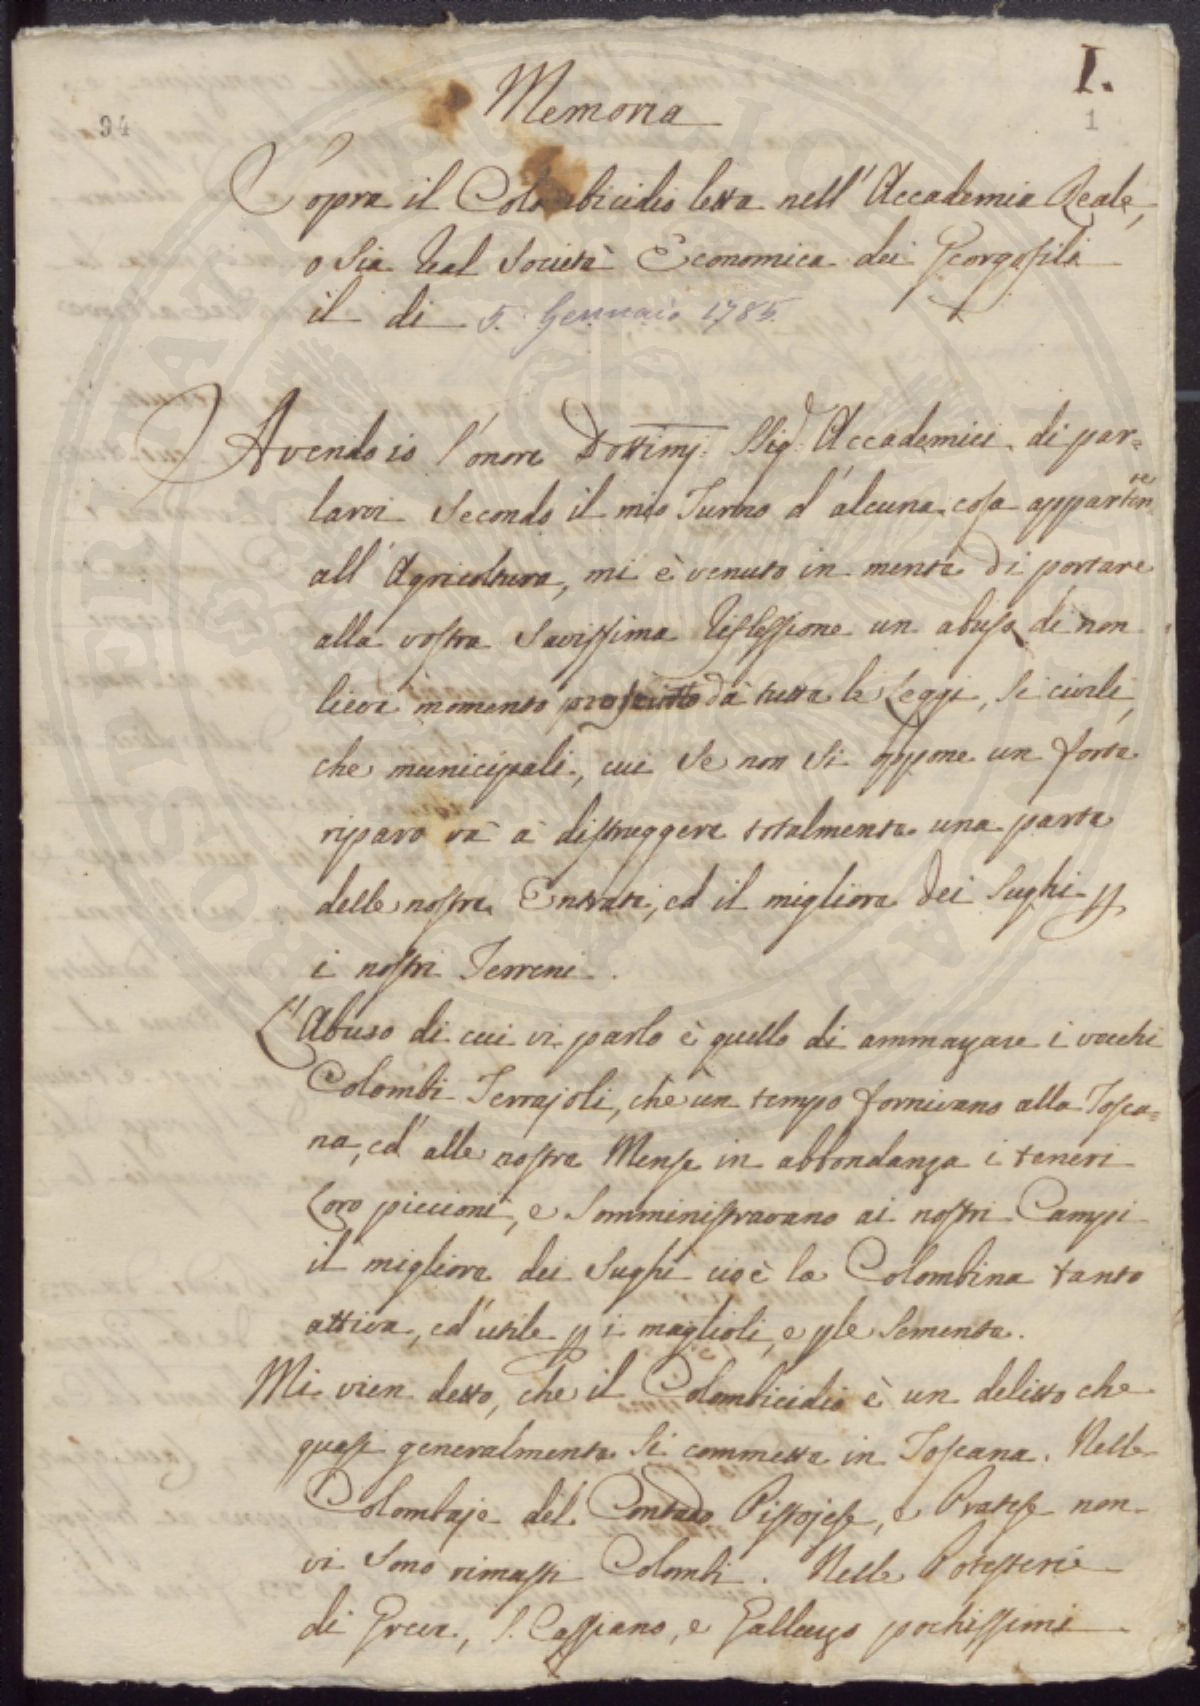 I.
1
94
Memoria
Sopra il Colombicidio letta nell' Accademia Reale,
o sia Real Società Economica dei Georgofili
il dì 5. Gennaio 1785.
Avendo io l'onore Dottimj: Sig.i Accademici di par=
larvi secondo il mio Turno d'alcuna cosa apparten
te
all'Agricoltura, mi è venuto in mente di portare
alla vostra savissima Riflessione un abuso di non
lieve momento proscritto da tutte le Leggi, si civili,
che municipali, cui se non si oppone un forte
riparo và à distruggere totalmente una parte
delle nostre Entrate, ed il migliore dei sughi p
i nostri Terreni.
L'Abuso di cui vi parlo è quello di ammazzare i vecchi
Colombi Terrajoli, che un tempo fornivano alla Tosca=
na, ed alle nostre Mense in abbondanza i teneri
loro piccioni, e somministravano ai nostri Campi
il migliore dei sughi cioè la Colombina tanto
attiva, ed utile p i maglioli, e ple sementa.
Mi vien detto, che il Colombicidio è un delitto che
quasi generalmente si commette in Toscana. Nelle
Colombaje del Contado Pistojese, e Pratese non
vi sono rimasti Colombi. Nelle Potesterie
di Greve, S. Cassiano, e Galluzzo pochissimi